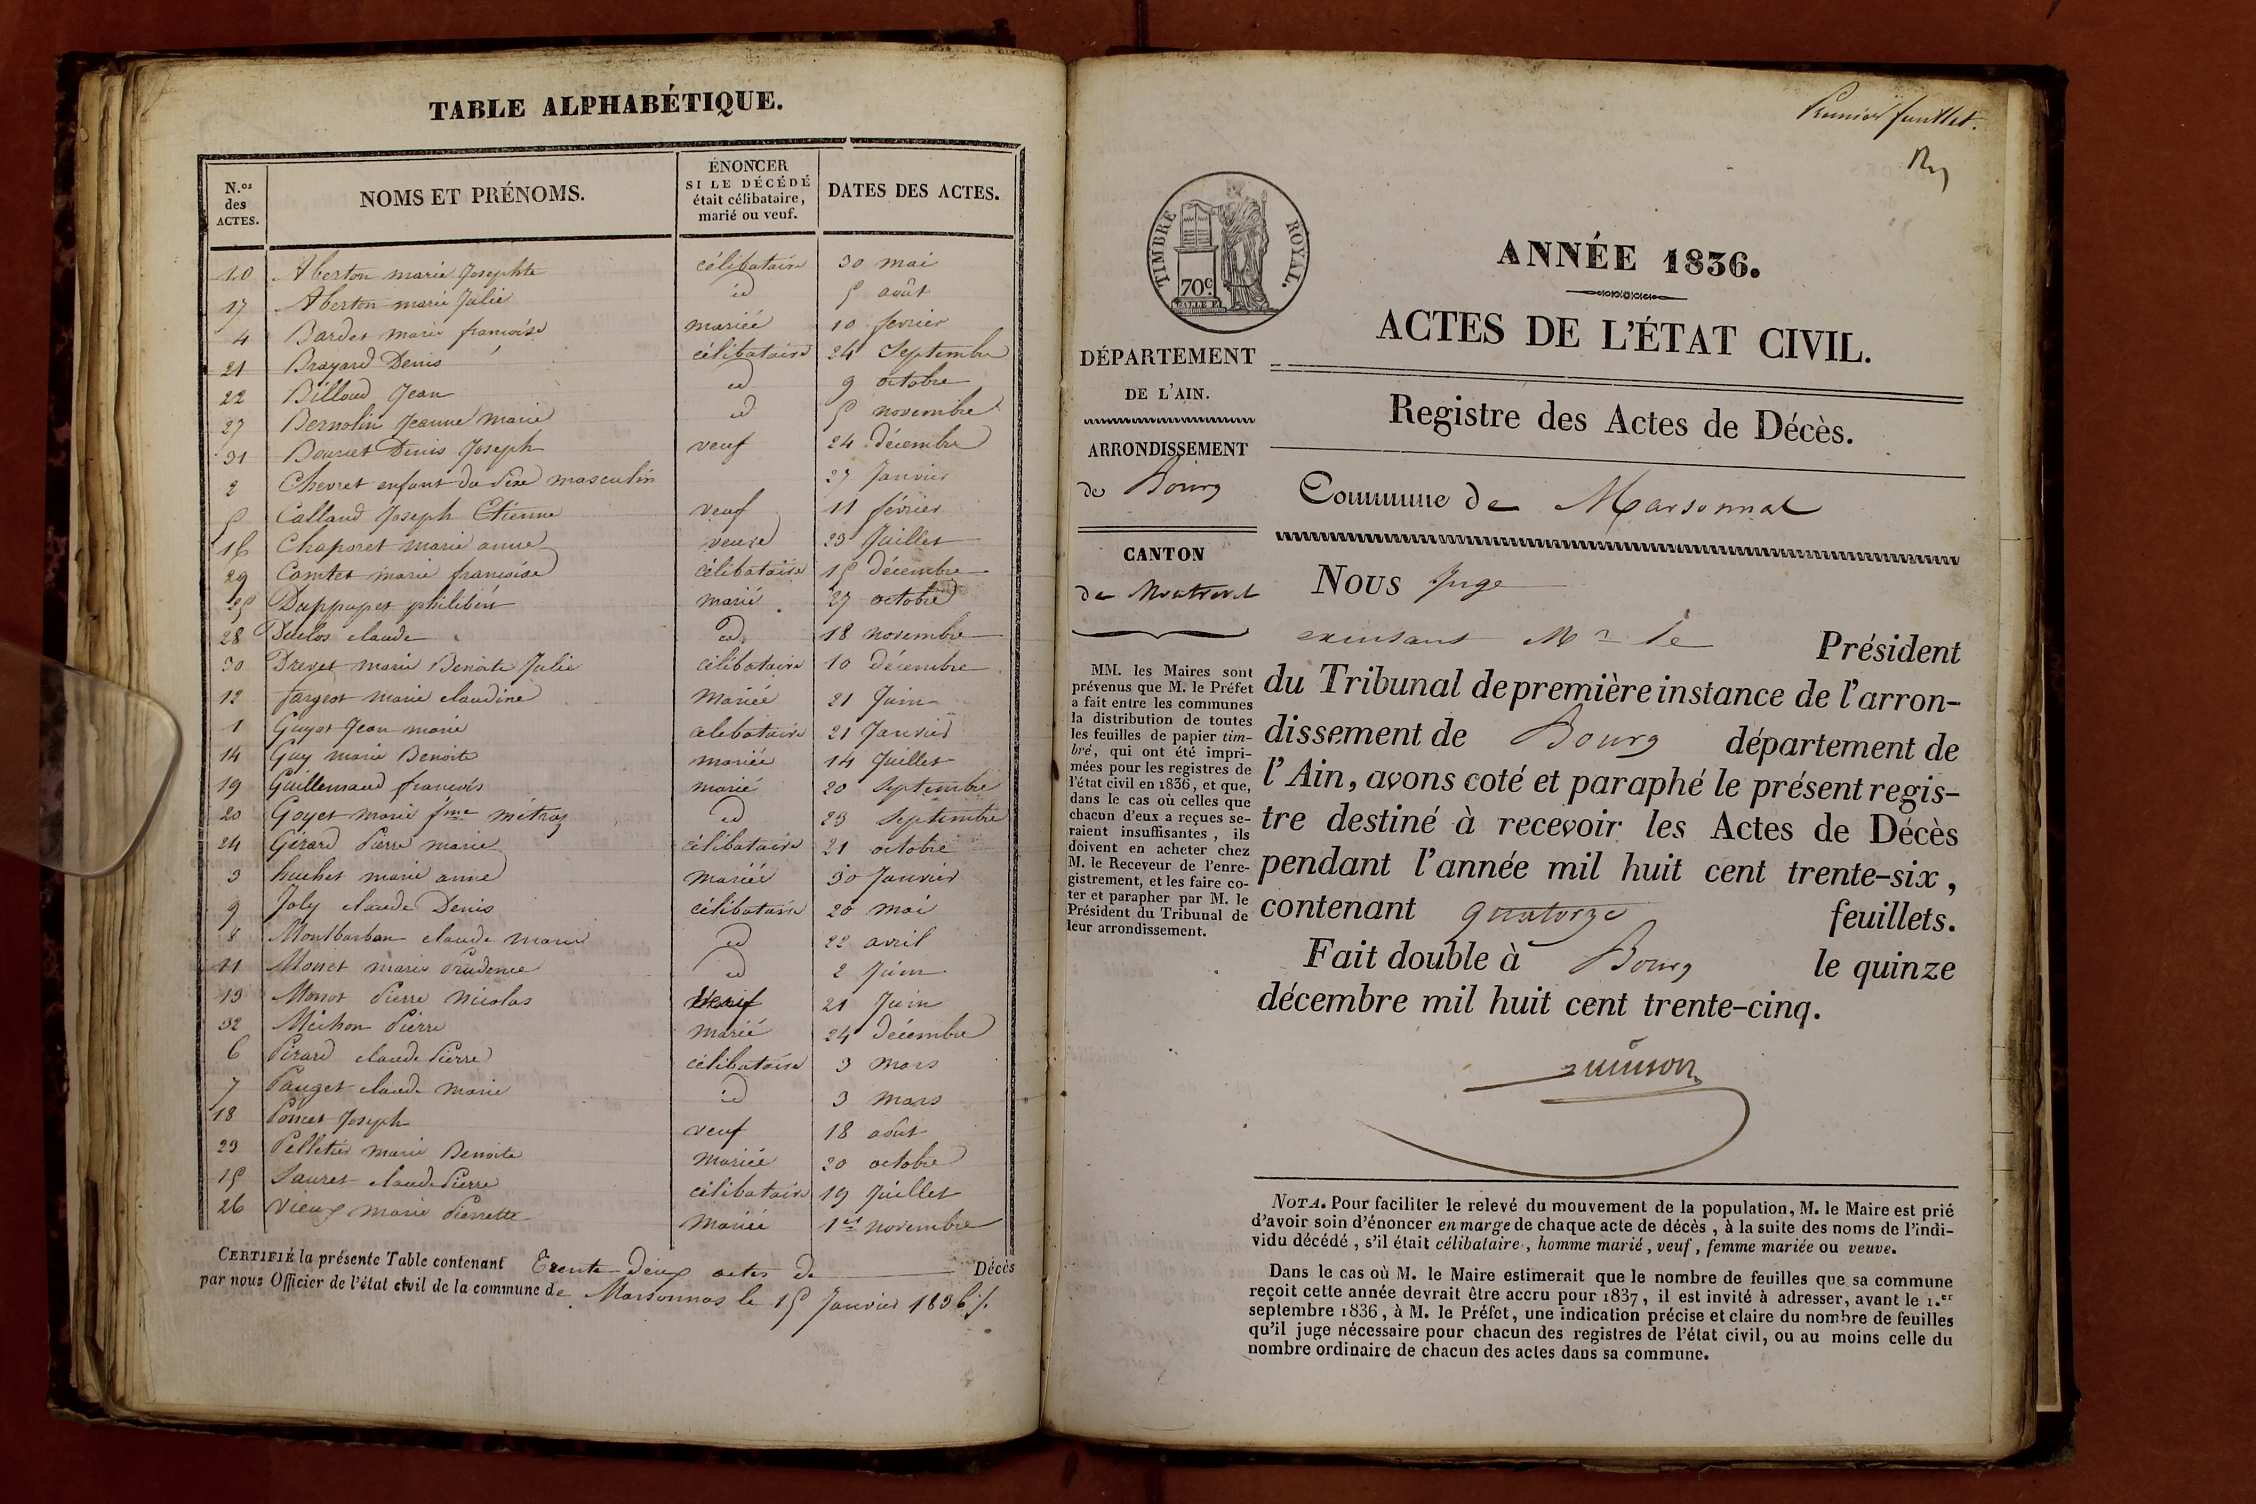 TABLE ALPHABÉTIQUE.
N.os des ACTES. NOMS ET PRÉNOMS. ÉNONCER SI LE DÉCÉDÉ était célibataire, marié ou veuf. DATES DES ACTES.
10 Aberton marie Josephte célibataire 30 mai
17 Aberton marie Julie id 5 août
4 Bardet marie françoise mariée 10 fevrier
21 Brayard Denis célibataire 24 Septembre
22 Billoud Jean id 9 octobre
27 Bernolin Jeanne Marie id 5 novembre
31 Bourcet Denis Joseph veuf 24 décembre
2 Chevret enfant du sexe masculin 27 Janvier
5 Calland Joseph Etienne veuf 11 février
16 Chaporet marie anne veuve 23 Juillet
29 Comtet marie françoise célibataire 15 décembre
25 philibert marié 27 octobre
28 Duclos claude id 18 novembre
30 Drevet marie Benoite Julie célibataire 10 décembre
12 fargeot marie claudine Mariée 21 Juin
1 Guyot Jean marie celebataire 21 Janvier
14 Guy marie Benoite mariée 14 Juillet
19 Guillemaud françois marié 20 Septembre
20 Goyet marie fme métraz id 23 Septembre
24 Gérard Pierre marie célibataire 21 octobre
3 huchet marie anne mariée 30 Janvier
9 Joly claude Denis célibataire 20 mai
8 Montbarbon claude marie id 22 avril
11 Monet marie Prudence id 2 Juin
13 Monot Pierre Nicolas veuf 21 Juin
32 Michon Pierre marié 24 décembre
6 Pirard claude Pierre célibataire 3 mars
7 Pauget claude marie id 3 mars
18 Poncet Joseph veuf 18 août
23 Pelletier marie Benoite mariée 20 octobre
15 Sauret claude Pierre célibataire 19 Juillet
26 vieux marie Pierrette Mariée 1er novembre
CERTIFIÉ la présente Table contenant Trente deux actes de Décès
par nous Officier de l'état civil de la commune de Marsonnas le 15 Janvier 1836
Premier feuillet.
TIMBRE ROYAL.
70c
ANNÉE 1836.
ACTES DE L'ÉTAT CIVIL.
DÉPARTEMENT
DE L'AIN.
Registre des Actes de Décès.
ARRONDISSEMENT
de Bourg
Commune de Marsonnat
CANTON
de Montrevel
MM. les Maires sont
prévenus que M. le Préfet
a fait entre les communes
la distribution de toutes
les feuilles de papier tim-
bré, qui ont été impri-
mées pour les registres de
l'état civil en 1836, et que,
dans le cas où celles que
chacun d'eux a reçues se-
raient insuffisantes, ils
doivent en acheter chez
M. le Receveur de l'enre-
gistrement, et les faire co-
ter et parapher par M. le
Président du Tribunal de
leur arrondissement.
NOUS Juge
Mr le Président
du Tribunal de première instance de l'arron-
dissement de Bourg département de
l'Ain, avons coté et paraphé le présent regis-
tre destiné à recevoir les Actes de Décès
pendant l'année mil huit cent trente-six,
contenant quatorze feuillets.
Fait double à Bourg le quinze
décembre mil huit cent trente-cinq.
NOTA. Pour faciliter le relevé du mouvement de la population, M. le Maire est prié
d'avoir soin d'énoncer en marge de chaque acte de décès, à la suite des noms de l'indi-
vidu décédé, s'il était célibataire, homme marié, veuf, femme mariée ou veuve.
Dans le cas où M. le Maire estimerait que le nombre de feuilles que sa commune
reçoit cette année devrait être accru pour 1837, il est invité à adresser, avant le 1.er
septembre 1836, à M. le Préfet, une indication précise et claire du nombre de feuilles
qu'il juge nécessaire pour chacun des registres de l'état civil, ou au moins celle du
nombre ordinaire de chacun des actes dans sa commune.